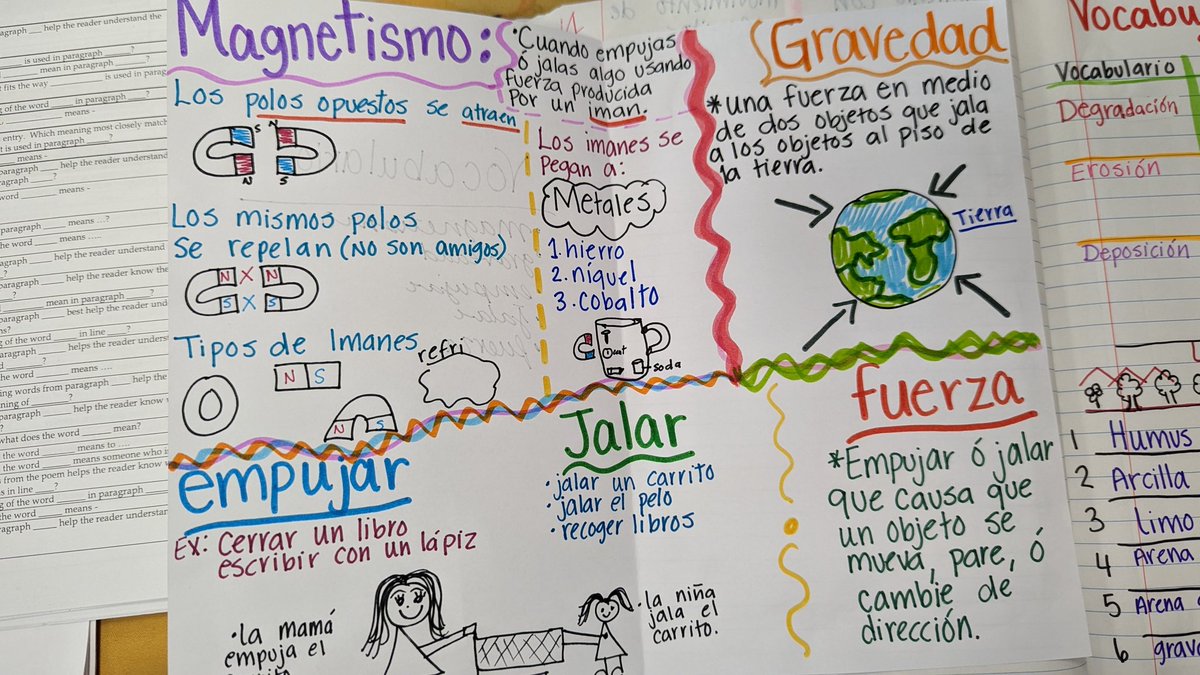 Magnetismo:
Los polos opuestos se atraen
S N
N S
Los mismos polos
se repelan (No son amigos)
N X N
S X S
Tipos de Imanes
N S
refri
N S
•Cuando empujas
ó jalas algo usando
fuerza producida
Por un iman.
Los imanes se
pegan a:
Metales
1. hierro
2. níquel
3. cobalto
soda
Gravedad
*una fuerza en medio
de dos objetos que jala
a los objetos al piso de
la tierra.
Tierra
empujar
EX: Cerrar un libro
escribir con un lápiz
•La mamá
empuja el
Jalar
•jalar un carrito
•jalar el pelo
•recoger libros
•la niña
jala el
carrito.
fuerza
*Empujar ó jalar
que causa que
un objeto se
mueva, pare, ó
cambie de
dirección.
Vocabulario
Degradación
Erosión
Deposición
1 Humus
2 Arcilla
3 Limo
4 Arena
5 Arena
6
aragraph ___ help the reader understand
is used in paragraph ___?
mean in paragraph ___?
t fits the way ___ is used in parag
ng of the word ___ in paragraph ___?
means -
entry. Which meaning most closely match
t is used in paragraph ___?
means -
aragraph ___ help the reader understand
ragraph ___?
means -
means ...?
he word ___ means ....
help the reader understand
help the reader know the
mean in paragraph ___?
paragraph ___ best help the reader und
in line ___?
helps the reader understand
he word ___ means ....
ing words from paragraph ___ help the
aning of ___?
paragraph ___ help the reader know
what does the word ___ mean?
the word ___ means to ....
the word ___ means someone who is
from the poem helps the reader know
in line ___?
ng of the word ___ in paragraph ___
the word ___ means -
help the reader understand